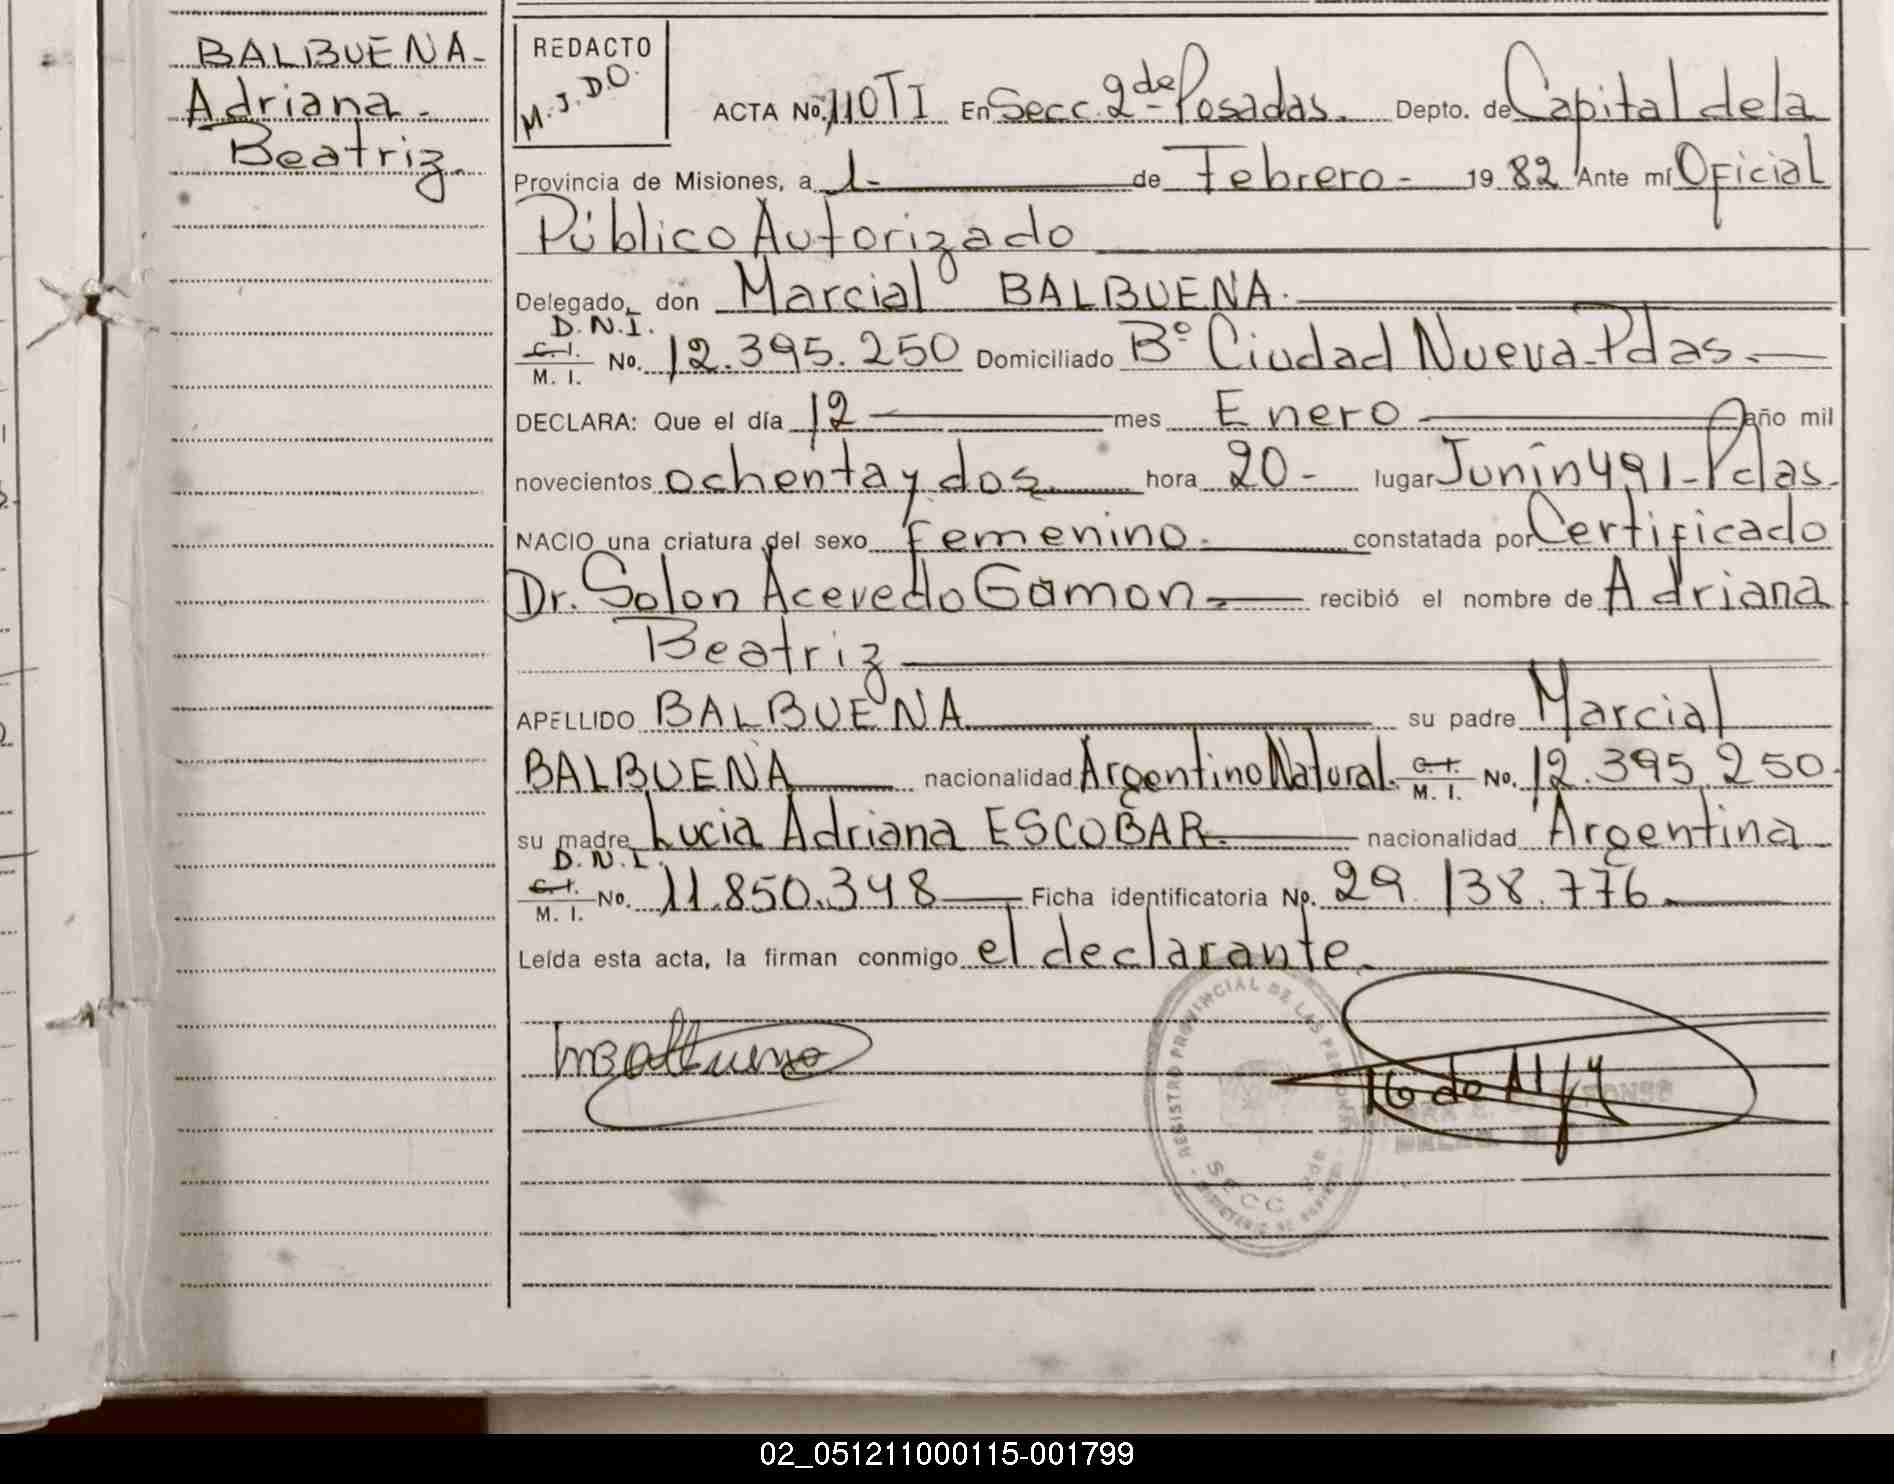 BALBUENA-
Adriana-
Beatriz-
REDACTO
M.J.D.O.
ACTA No. 110TI En Secc. 2da de Posadas. Depto. de Capital de la
Provincia de Misiones, a 1- de Febrero- 19 82 Ante mí Oficial
Público Autorizado
Delegado, don Marcial BALBUENA.
D.N.I.
C. I.
M. I. No. 12.395.250 Domiciliado Bº Ciudad Nueva-Pdas.
DECLARA: Que el día 12 mes Enero año mil
novecientos ochenta y dos hora 20- lugar Junín 491-Pdas.
NACIO una criatura del sexo femenino. constatada por Certificado
Dr. Solon Acevedo Gamon recibió el nombre de Adriana
Beatriz
APELLIDO BALBUENA su padre Marcial
BALBUENA nacionalidad Argentino Natural. C. I. M. I. No. 12.395.250.
su madre Lucia Adriana ESCOBAR. nacionalidad Argentina
D.N.I.
C. I.
M. I. No. 11.850.348 Ficha identificatoria No. 29.138.776
Leída esta acta, la firman conmigo el declarante.
MBalbuena
REGISTRO PROVINCIAL DE LAS PERSONAS
SECC 2da
02_051211000115-001799